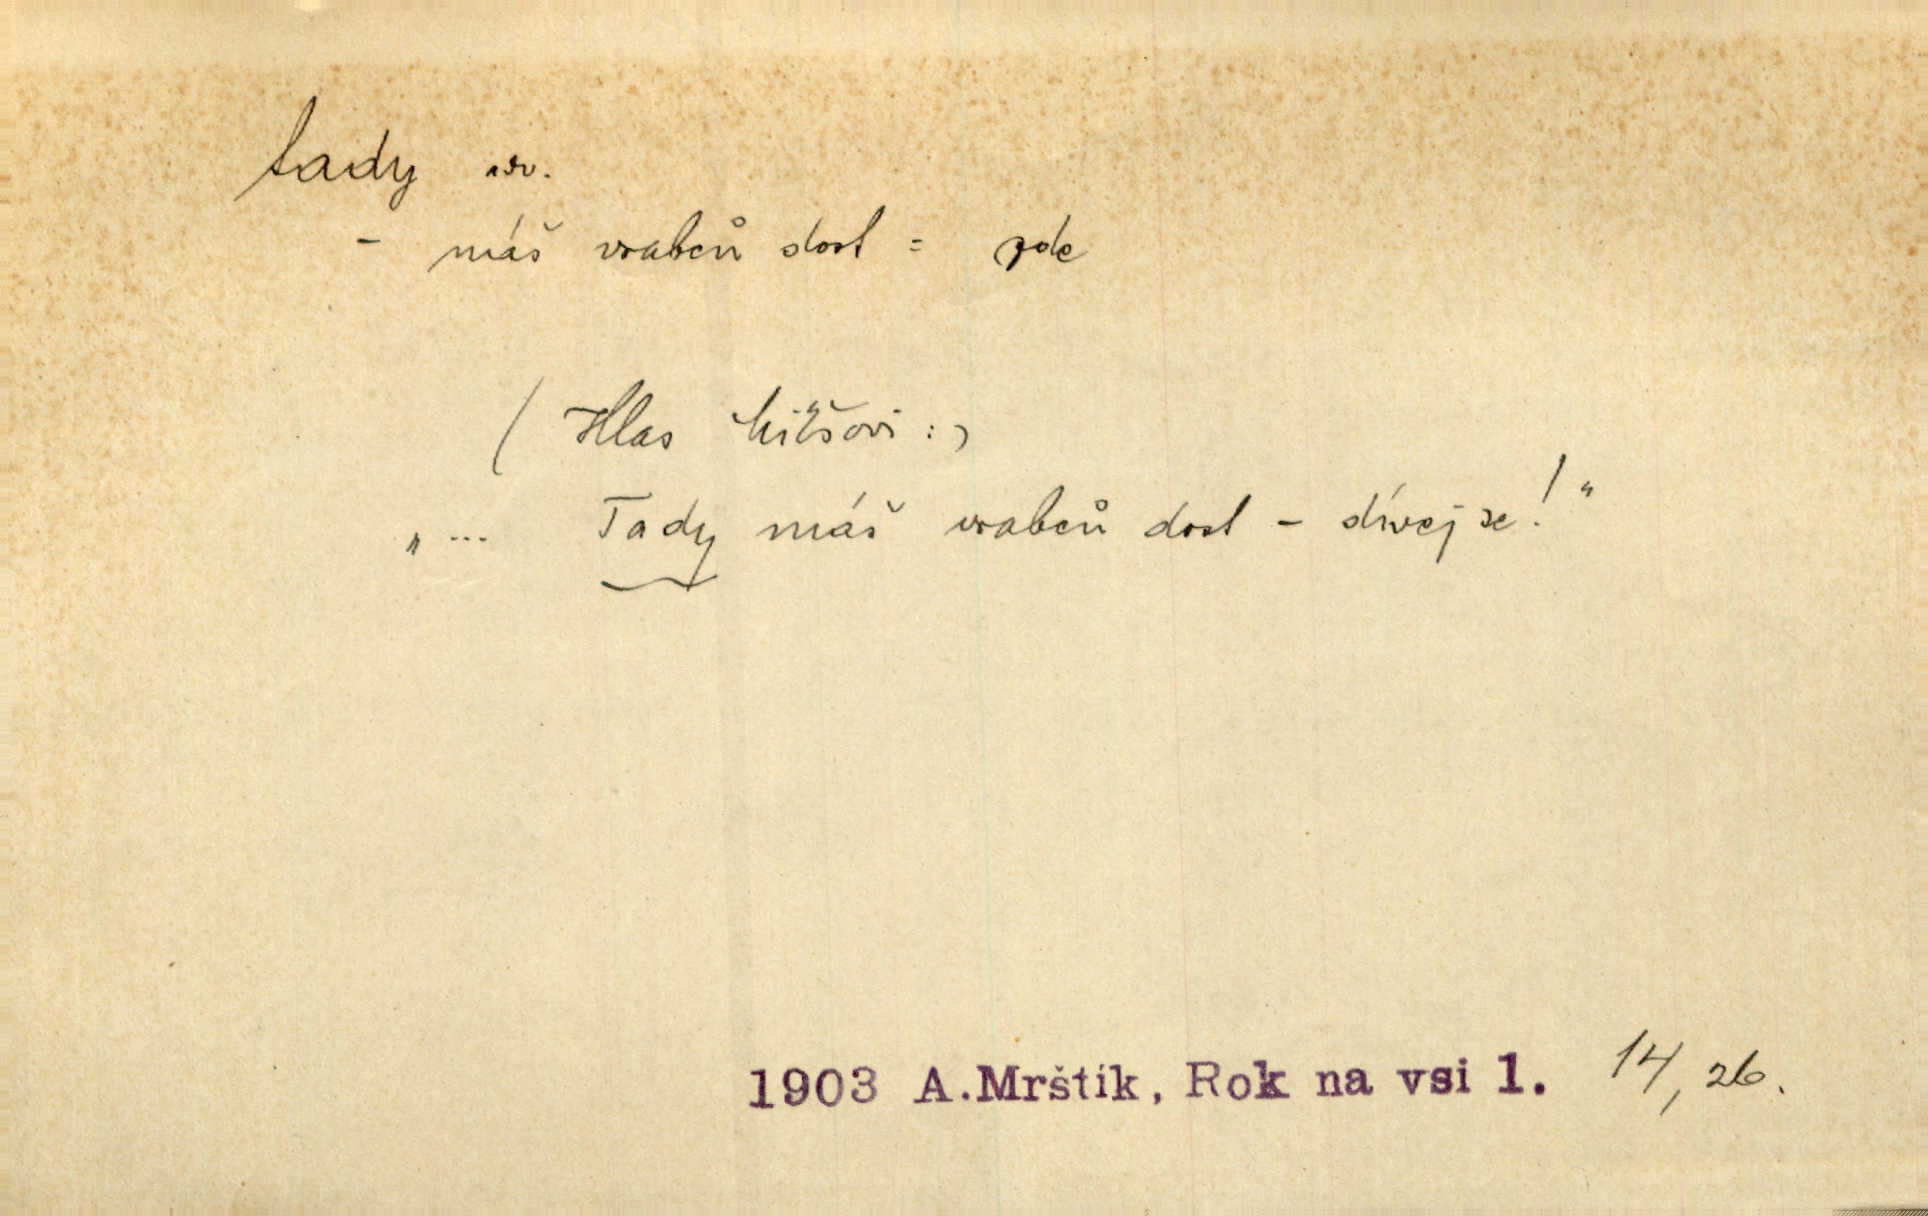 tady adv.
- máš vrabců dost = zde
( Hlas hišovi : )
„ ... Tady máš vrabců dost - dívej se! "
1903 A.Mrštík, Rok na vsi 1. 14, 26.